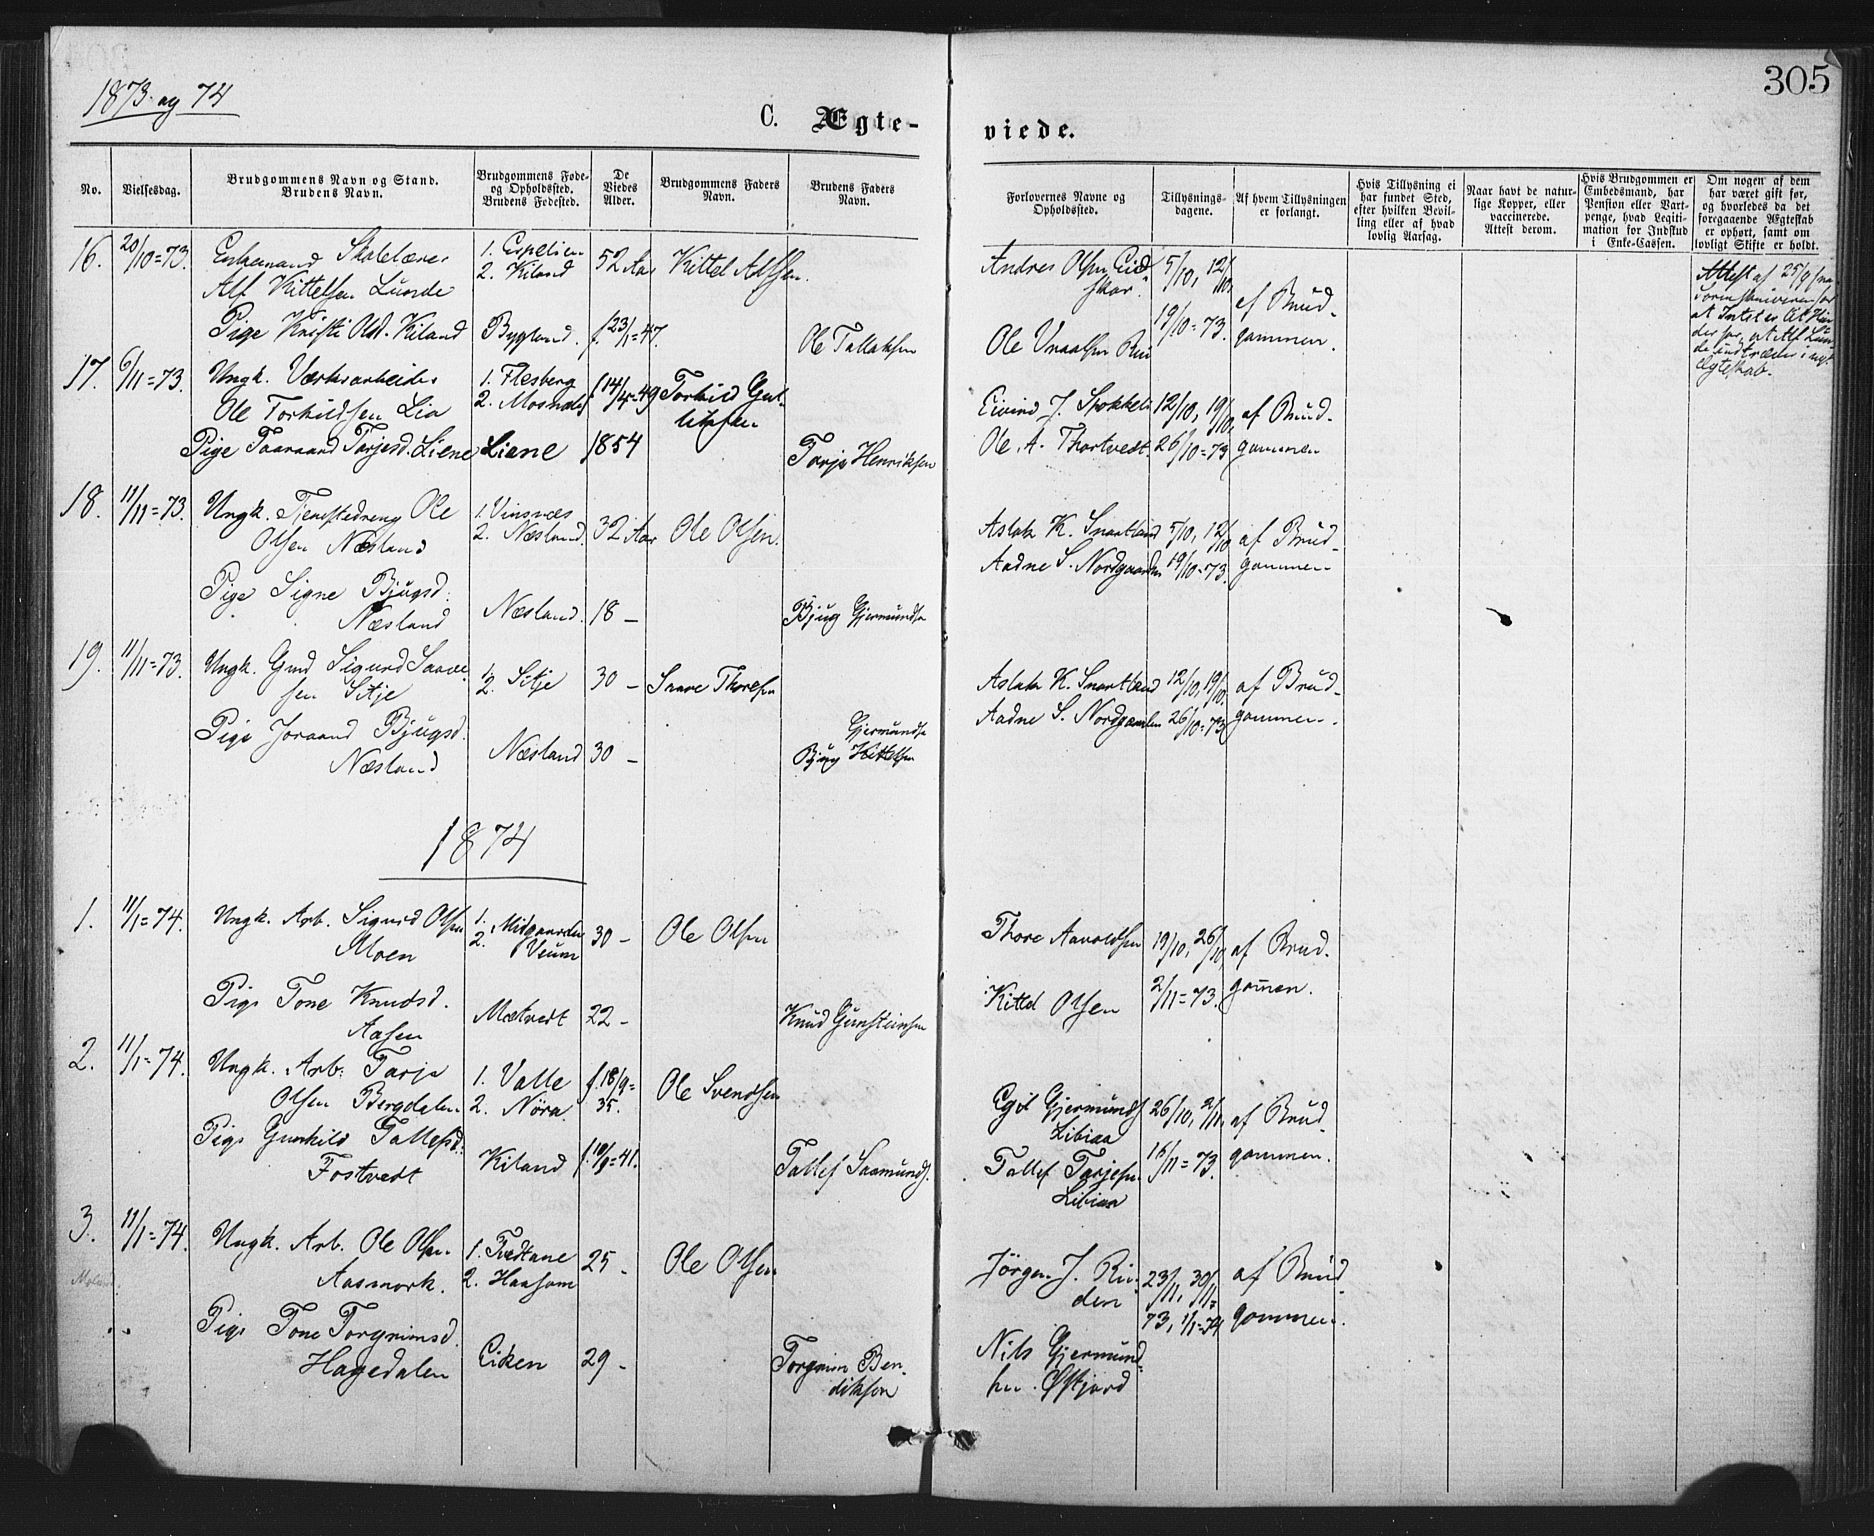 305
1873 og 74
C. Ægte- viede.
No.
Vielsesdag.
Brudgommens Navn og Stand.
Brudens Navn.
Brudgommens Føde-
og Opholdssted.
Brudens Fødested.
De
Viedes
Alder.
Brudgommens Faders
Navn.
Brudens Faders
Navn.
Forlovernes Navne og
Opholdssted.
Tillysnings-
dagene.
Af hvem Tillysningen
er forlangt.
Hvis Tillysning ei
har fundet Sted,
efter hvilken Bevil-
ling eller af hvad
lovlig Aarsag.
Naar havt de natur-
lige Kopper, eller
vaccinerede.
Attest derom.
Hvis Brudgommen er
Embedsmand, har
Pension eller Vart-
penge, hvad Legiti-
mation for Indskud
i Enke-Cassen.
Om nogen af dem
har været gift før,
og hvorledes da det
foregaaende Ægteskab
er ophørt, samt om
lovligt Skifte er holdt.
16. 20/10=73. Enkemand Skolelærer
Alf Kittelsen Lunde
1. Espelien
2. Kiland
52 Aar Kittel Alfsen.
Andres Olsen Eid-
skar.
5/10, 12/10,
19/10=73.
af Brud-
gommen.
Attest af 25/9 fra
Pige Kristi Olsd. Kiland Bygland. f. 23/1=47.
Ole Tallaksen
Ole Vraalsen
17. 6/11=73. Ungk. Værksarbeider
Ole Torkildsen Lia
1. Flesberg
2. Mosnæs
f 14/4=49 Torkild Gul-
liksen
Eivind J. 12/10, 19/10, af Brud-
Pige Taaraand Tarjesd. Liene Liene 1854
Tarje Henriksen
Ole A. Thortvedt. 26/10=73 gommen
18. 11/11=73. Ungk. Tjenestedreng Ole
Olsen Næsland
1. Vinsnæs
2. Næsland.
32 Aar Ole Olsen.
Aslak K. Snartland 5/10, 12/10 af Brud-
Aadne S. Nordgaarden 19/10=73. gommen
Pige Signe Bjugsd.
Næsland
Næsland. 18 –
Bjug Gjermundsen
19. 11/11=73. Ungk. Gmd Sigurd Saave-
sen Sitje
1.
2. Sitje 30 – Saave Thoresen
Aslak K. Snartland 12/10, 19/10, af Brud-
Aadne S. Nordgaarden 26/10=73 gommen.
Pige Joraand Bjugsd.
Næsland
Næsland 30 –
Gjermundsen
Bjug Kittelsen
1874
1. 11/1=74. Ungk. Arb. Sigurd Olsen
Moen
1.
2. Midgaarden
Veum
30 – Ole Olsen
Thore Aavoldsen 19/10, 26/10, af Brud-
Pige Tone Knudsd.
Aasen
Mætvedt 22 –
Knud Gunsteinsen
Kittel Olsen 2/11=73. gommen.
2. 11/1=74. Ungk. Arb. Tarje
Olsen Bergdalen
1. Valle
2. Nöra
f. 18/9=
35.
Ole Svendsen
Egil Gjermunds
Libiaa
26/10, 2/11, af Brud-
Pige Gunhild Tallefsd.
Fostvedt
Kiland f. 10/9=41.
Tallef Saamunds.
Tallef Tarjesen
Libiaa
16/11=73. gommen.
3. 11/1=74. Ungk. Arb. Ole Olsen
Aasmork.
1. Tvedtane
2. Haasom
25 – Ole Olsen
Jörgen J. Rui-
den
23/11, 30/11=
73, 1/1=74
af Brud-
gommen.
Pige Tone Torgrimsd.
Hagedalen
Eiken 29 –
Torgrim Ben-
diksen
Nils Gjermund-
sen Øifjord